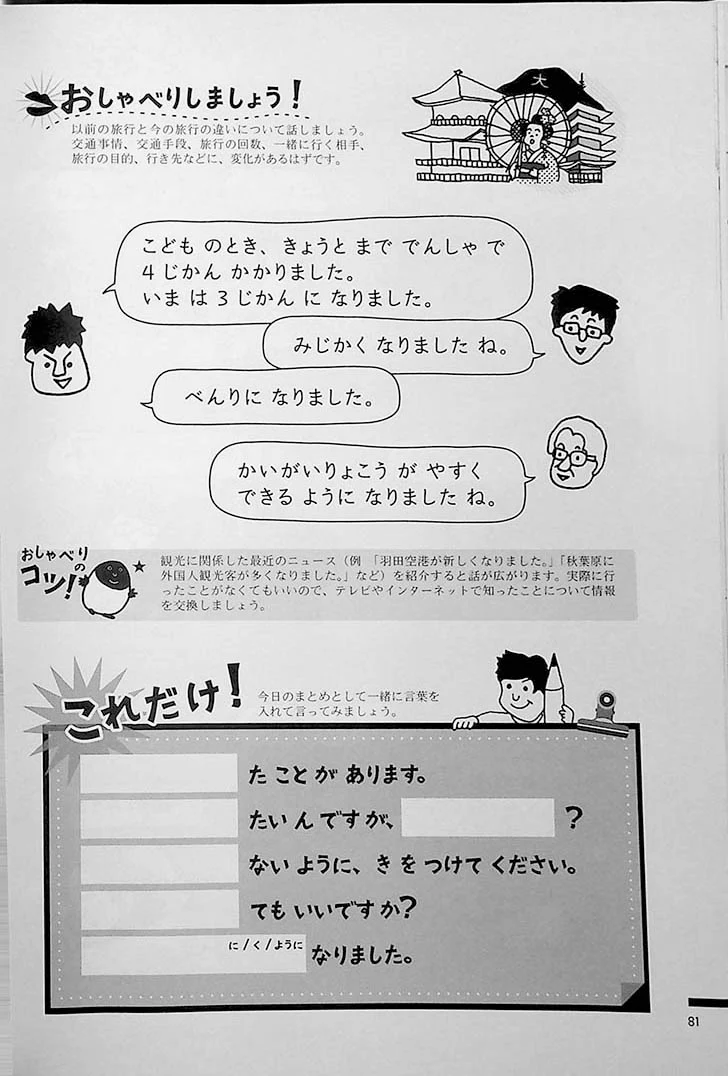 おしゃべりしましょう！
以前の旅行と今の旅行の違いについて話しましょう。
交通事情、交通手段、旅行の回数、一緒に行く相手、
旅行の目的、行き先などに、変化があるはずです。
大
こども のとき、きょうと まで でんしゃ で
4 じかん かかりました。
いま は 3 じかん に なりました。
みじかく なりました ね。
べんりに なりました。
かいがいりょこう が やすく
できる ように なりました ね。
おしゃべり
の
コツ！
観光に関係した最近のニュース（例 「羽田空港が新しくなりました。」「秋葉原に
外国人観光客が多くなりました。」など）を紹介すると話が広がります。実際に行
ったことがなくてもいいので、テレビやインターネットで知ったことについて情報
を交換しましょう。
これだけ！
今日のまとめとして一緒に言葉を
入れて言ってみましょう。
た ことが あります。
たい ん ですが、 ？
ない ように、き を つけて ください。
ても いいです か？
に / く / ように なりました。
81